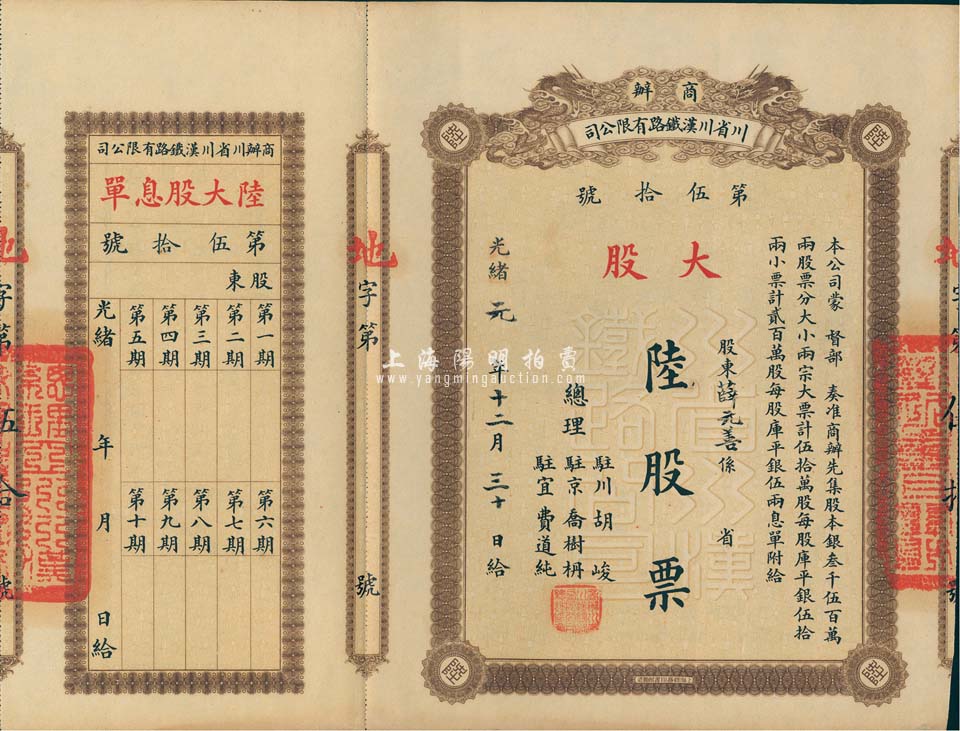 商辦
川省川漢鐵路有限公司
第伍拾號
大股
本公司蒙 督部 奏准商辦先集股本銀叁千伍百萬
兩股票分大小兩宗大票計伍拾萬股每股庫平銀伍拾
兩小票計貳百萬股每股庫平銀伍兩息單附給
股東薛元善係 省
陸股票
總理
駐川胡峻
駐京喬樹枏
駐宜費道純
光緒元年十二月三十日給
地字第 號
商辦川省川漢鐵路有限公司
陸大股息單
第伍拾號
股東
第一期
第二期
第三期
第四期
第五期
第六期
第七期
第八期
第九期
第十期
光緒 年 月 日給
地字第伍拾號
上海陽明拍賣
www.yangmingauction.com